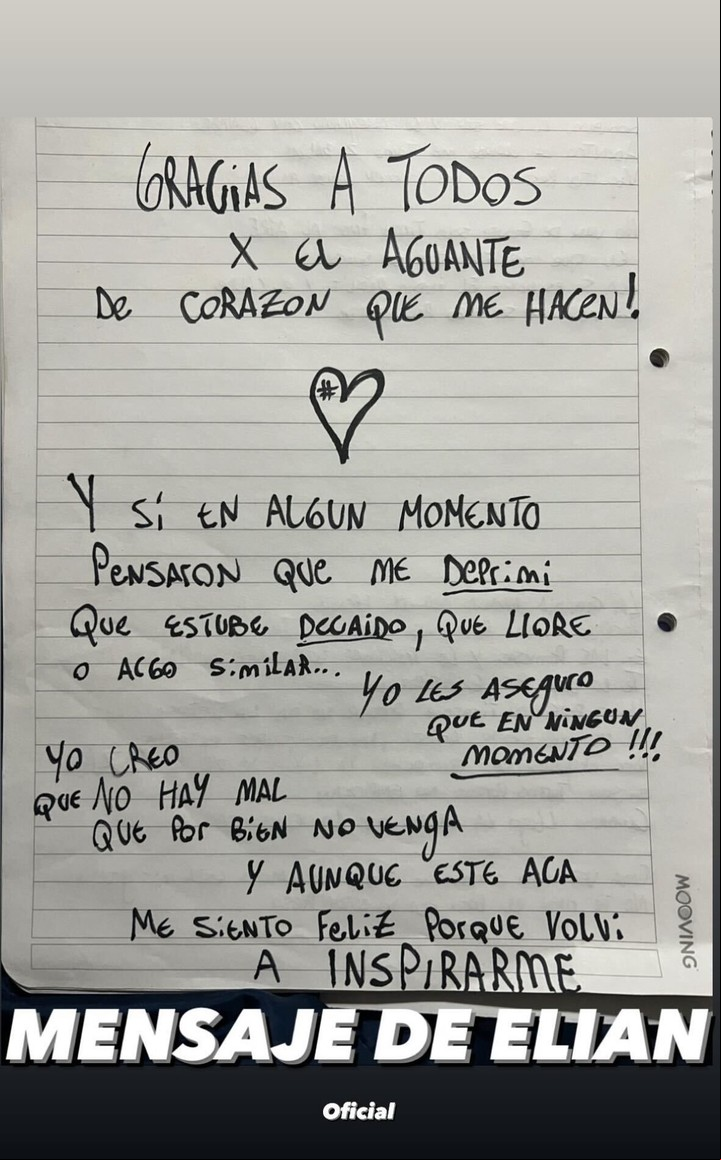 GRACIAS A TODOS
X EL AGUANTE
DE CORAZON QUE ME HACEN!
#
Y SÍ EN ALGUN MOMENTO
PENSARON QUE ME DEPRIMI
QUE ESTUBE DECAIDO, QUE LLORE
O ALGO SIMILAR...
YO LES ASEGURO
QUE EN NINGUN
MOMENTO !!!
YO CREO
QUE NO HAY MAL
QUE POR BIEN NO VENGA
Y AUNQUE ESTE ACA
ME SIENTO FELIZ PORQUE VOLVI
A INSPIRARME
MOOVING
MENSAJE DE ELIAN
Oficial